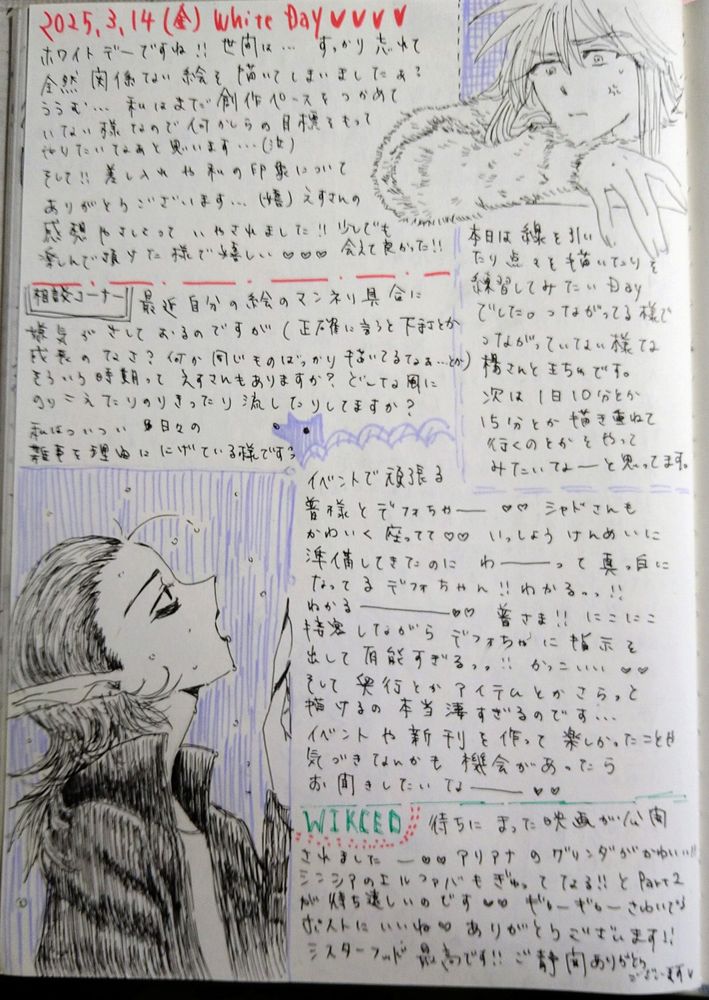 2025,3,14(金) White Day♥♥♥♥
ホワイトデーですね!! 世間は… すっかり忘れて
全然関係ない絵を描いてしまいましたぁ?
ううむ… 私はまだ創作ペースをつかめて
いない様なので何かしらの目標をもって
やりたいなぁと思います…(汗)
そして!! 差し入れや私の印象について
ありがとうございます…(嬉) えすさんの
感想やさしくって いやされました!! 少しでも
楽しんで頂けた様で嬉しい♡♡♡ 会えて良かった!!
相談コーナー 最近自分の絵のマンネリ具合に
嫌気がさしておるのですが(正確に言うと下手とか
成長のなさ?何か同じものばっかり描いてるなぁ…とか)
そういう時期って えすさんもありますか? どんな風に
のりこえたりのりきったり流したりしてますか?
私はついつい 日々の
雑事を理由ににげている様です
本日は線を引い
たり点々を描いたりを
練習してみたいDay
でした。つながってる様で
つながっていない様な
楊さんとまちゅです。
次は1日10分とか
15分とか描き重ねて
行くのとかをやって
みたいなーと思ってます。
イベントで頑張る
普様とデフォちゃー♡♡ シャドさんも
かわいく座ってて♡♡ いっしょうけんめいに
準備してきたのに わーーって真っ白に
なってるデフォちゃん!! わかるっっ!!
わかるーーー♡♡ 普さま!! にこにこ
接客しながらデフォちゃに指示を
出して有能すぎるっっ!! かっこいい♡♡
そして奥行とかアイテムとかさらっと
描けるの本当凄すぎるのです…
イベントや新刊を作って楽しかったことや
気づきなんかも機会があったら
お聞きしたいなー♡♡
WIKCED 待ちにまった映画が公開
されましたー♡♡アリアナのグリンダがかわいい!!
シンシアのエルファバもぎゅってなる!!とPart2
が待ち遠しいのです♡♡ ギャーギャーさわいでる
ポストにいいね♡ありがとうございます!!
シスターフッド最高です!! ご静聞ありがとう
ございます♥